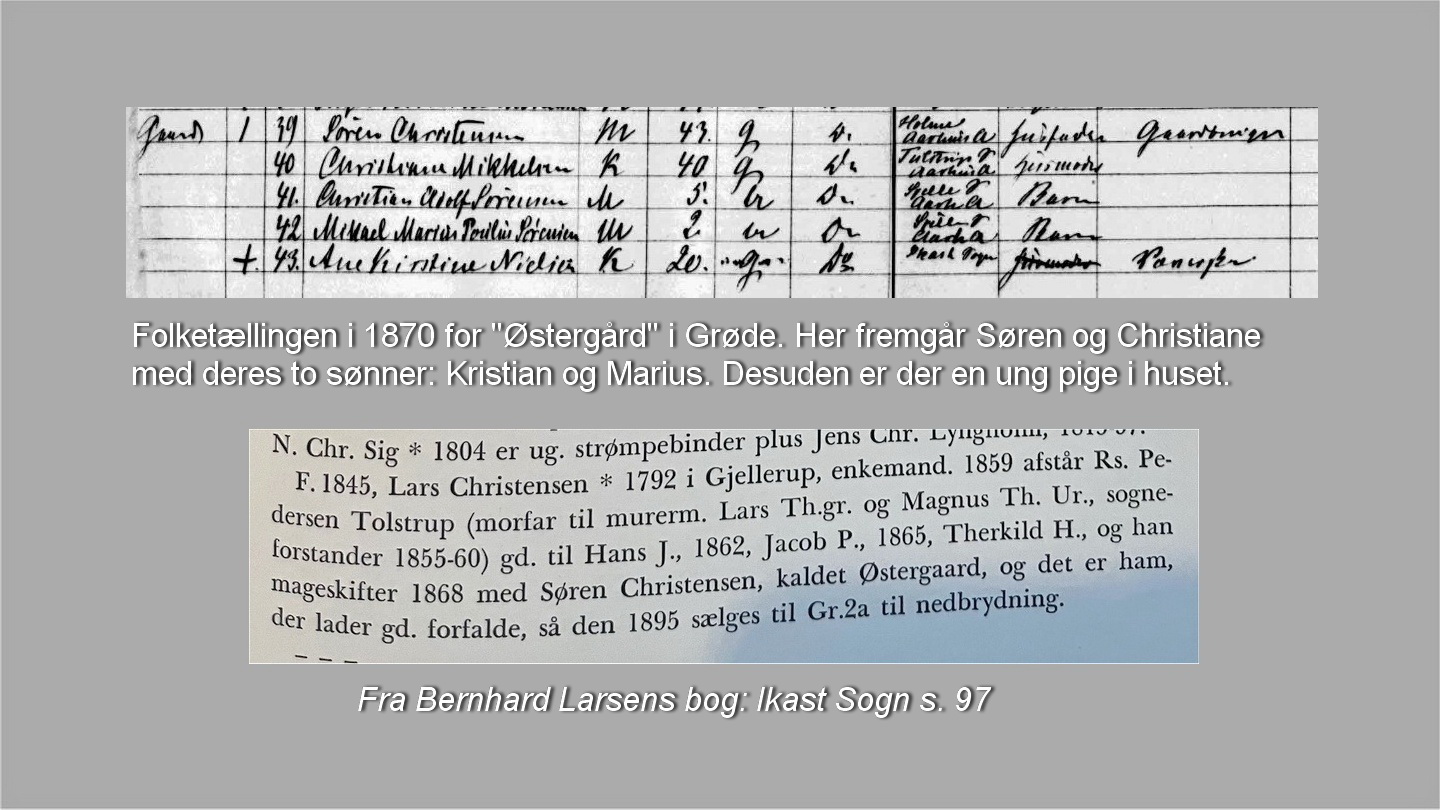 Gaard 1 39 Søren Christensen M 43. g Do. Holme Aarhus A Huusfader Gaardbruger
40 Christiane Mikkelsen K 40 g Do Aarhus A Huusmoder
41. Christian Adolf Sørensen M 5. Do Aarh. A Barn
42 Mikael Marius Poulus Sørensen M 2. Do Aarh A Barn
+ 43. Ane Kirstine Nielsen K 20. Do Ikast Sogn
Folketællingen i 1870 for "Østergård" i Grøde. Her fremgår Søren og Christiane
med deres to sønner: Kristian og Marius. Desuden er der en ung pige i huset.
N. Chr. Sig * 1804 er ug. strømpebinder plus Jens Chr. Lyngholm,
F. 1845, Lars Christensen * 1792 i Gjellerup, enkemand. 1859 afstår Rs. Pe-
dersen Tolstrup (morfar til murerm. Lars Th.gr. og Magnus Th. Ur., sogne-
forstander 1855-60) gd. til Hans J., 1862, Jacob P., 1865, Therkild H., og han
mageskifter 1868 med Søren Christensen, kaldet Østergaard, og det er ham,
der lader gd. forfalde, så den 1895 sælges til Gr.2a til nedbrydning.
– – –
Fra Bernhard Larsens bog: Ikast Sogn s. 97